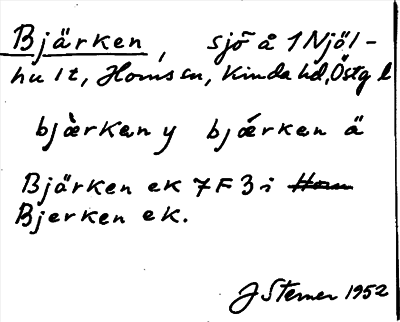 Bjärken, sjö å 1 Njöl-
hult, Horns sn, Kinda hd, Östg l
bjὰrkan y bjǽrken ä
Bjärken ek 7F3i
Bjerken ek.
J Sterner 1952